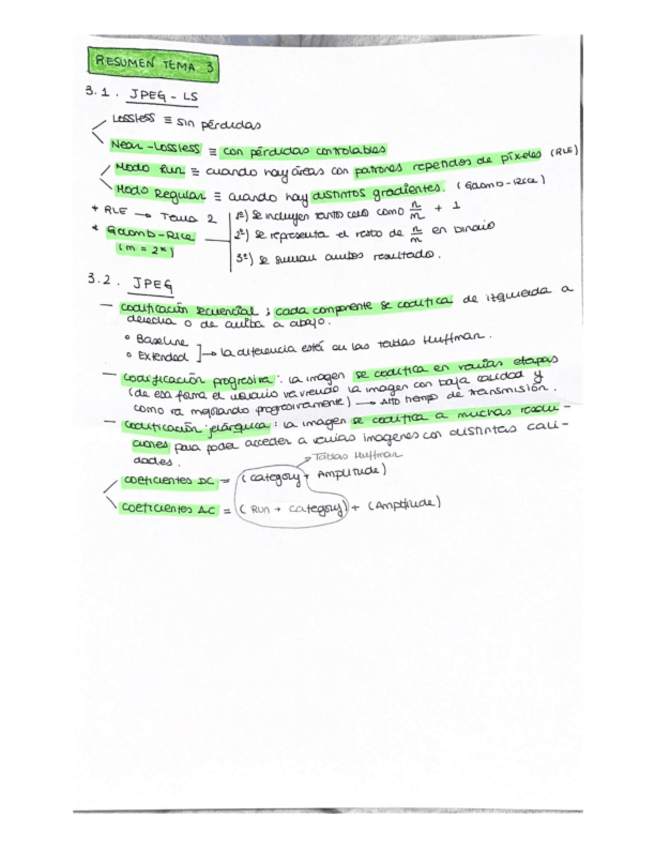 RESUMEN TEMA 3
3.1. JPEG - LS
Lossless ≡ sin pérdidas
Near-Lossless ≡ con pérdidas controlables
Modo Run ≡ cuando hay áreas con patrones repetidos de píxeles (RLE)
Modo Regular ≡ cuando hay distintos gradientes. (Golomb-Rice)
* RLE → Tema 2
* Golomb-Rice
(m = 2ᵏ)
1º) Se incluyen tanto ceros como n/m + 1
2º) Se representa el resto de n/m en binario
3º) Se suman ambos resultado.
3.2. JPEG
— codificación secuencial ; cada componente se codifica de izquierda a
derecha o de arriba a abajo.
° Baseline
° Extended ] → la diferencia está en las tablas Huffman.
— codificación progresiva : la imagen se codifica en varias etapas
(de esa forma el usuario va viendo la imagen con baja calidad y
como va mejorando progresivamente) → alto tiempo de transmisión.
— codificación jerárquica : la imagen se codifica a muchas resolu-
ciones para poder acceder a varias imagenes con distintas cali-
dades.
Tablas Huffman
coeficientes DC = (category + Amplitude)
coeficientes AC = (Run + category) + (Amplitude)